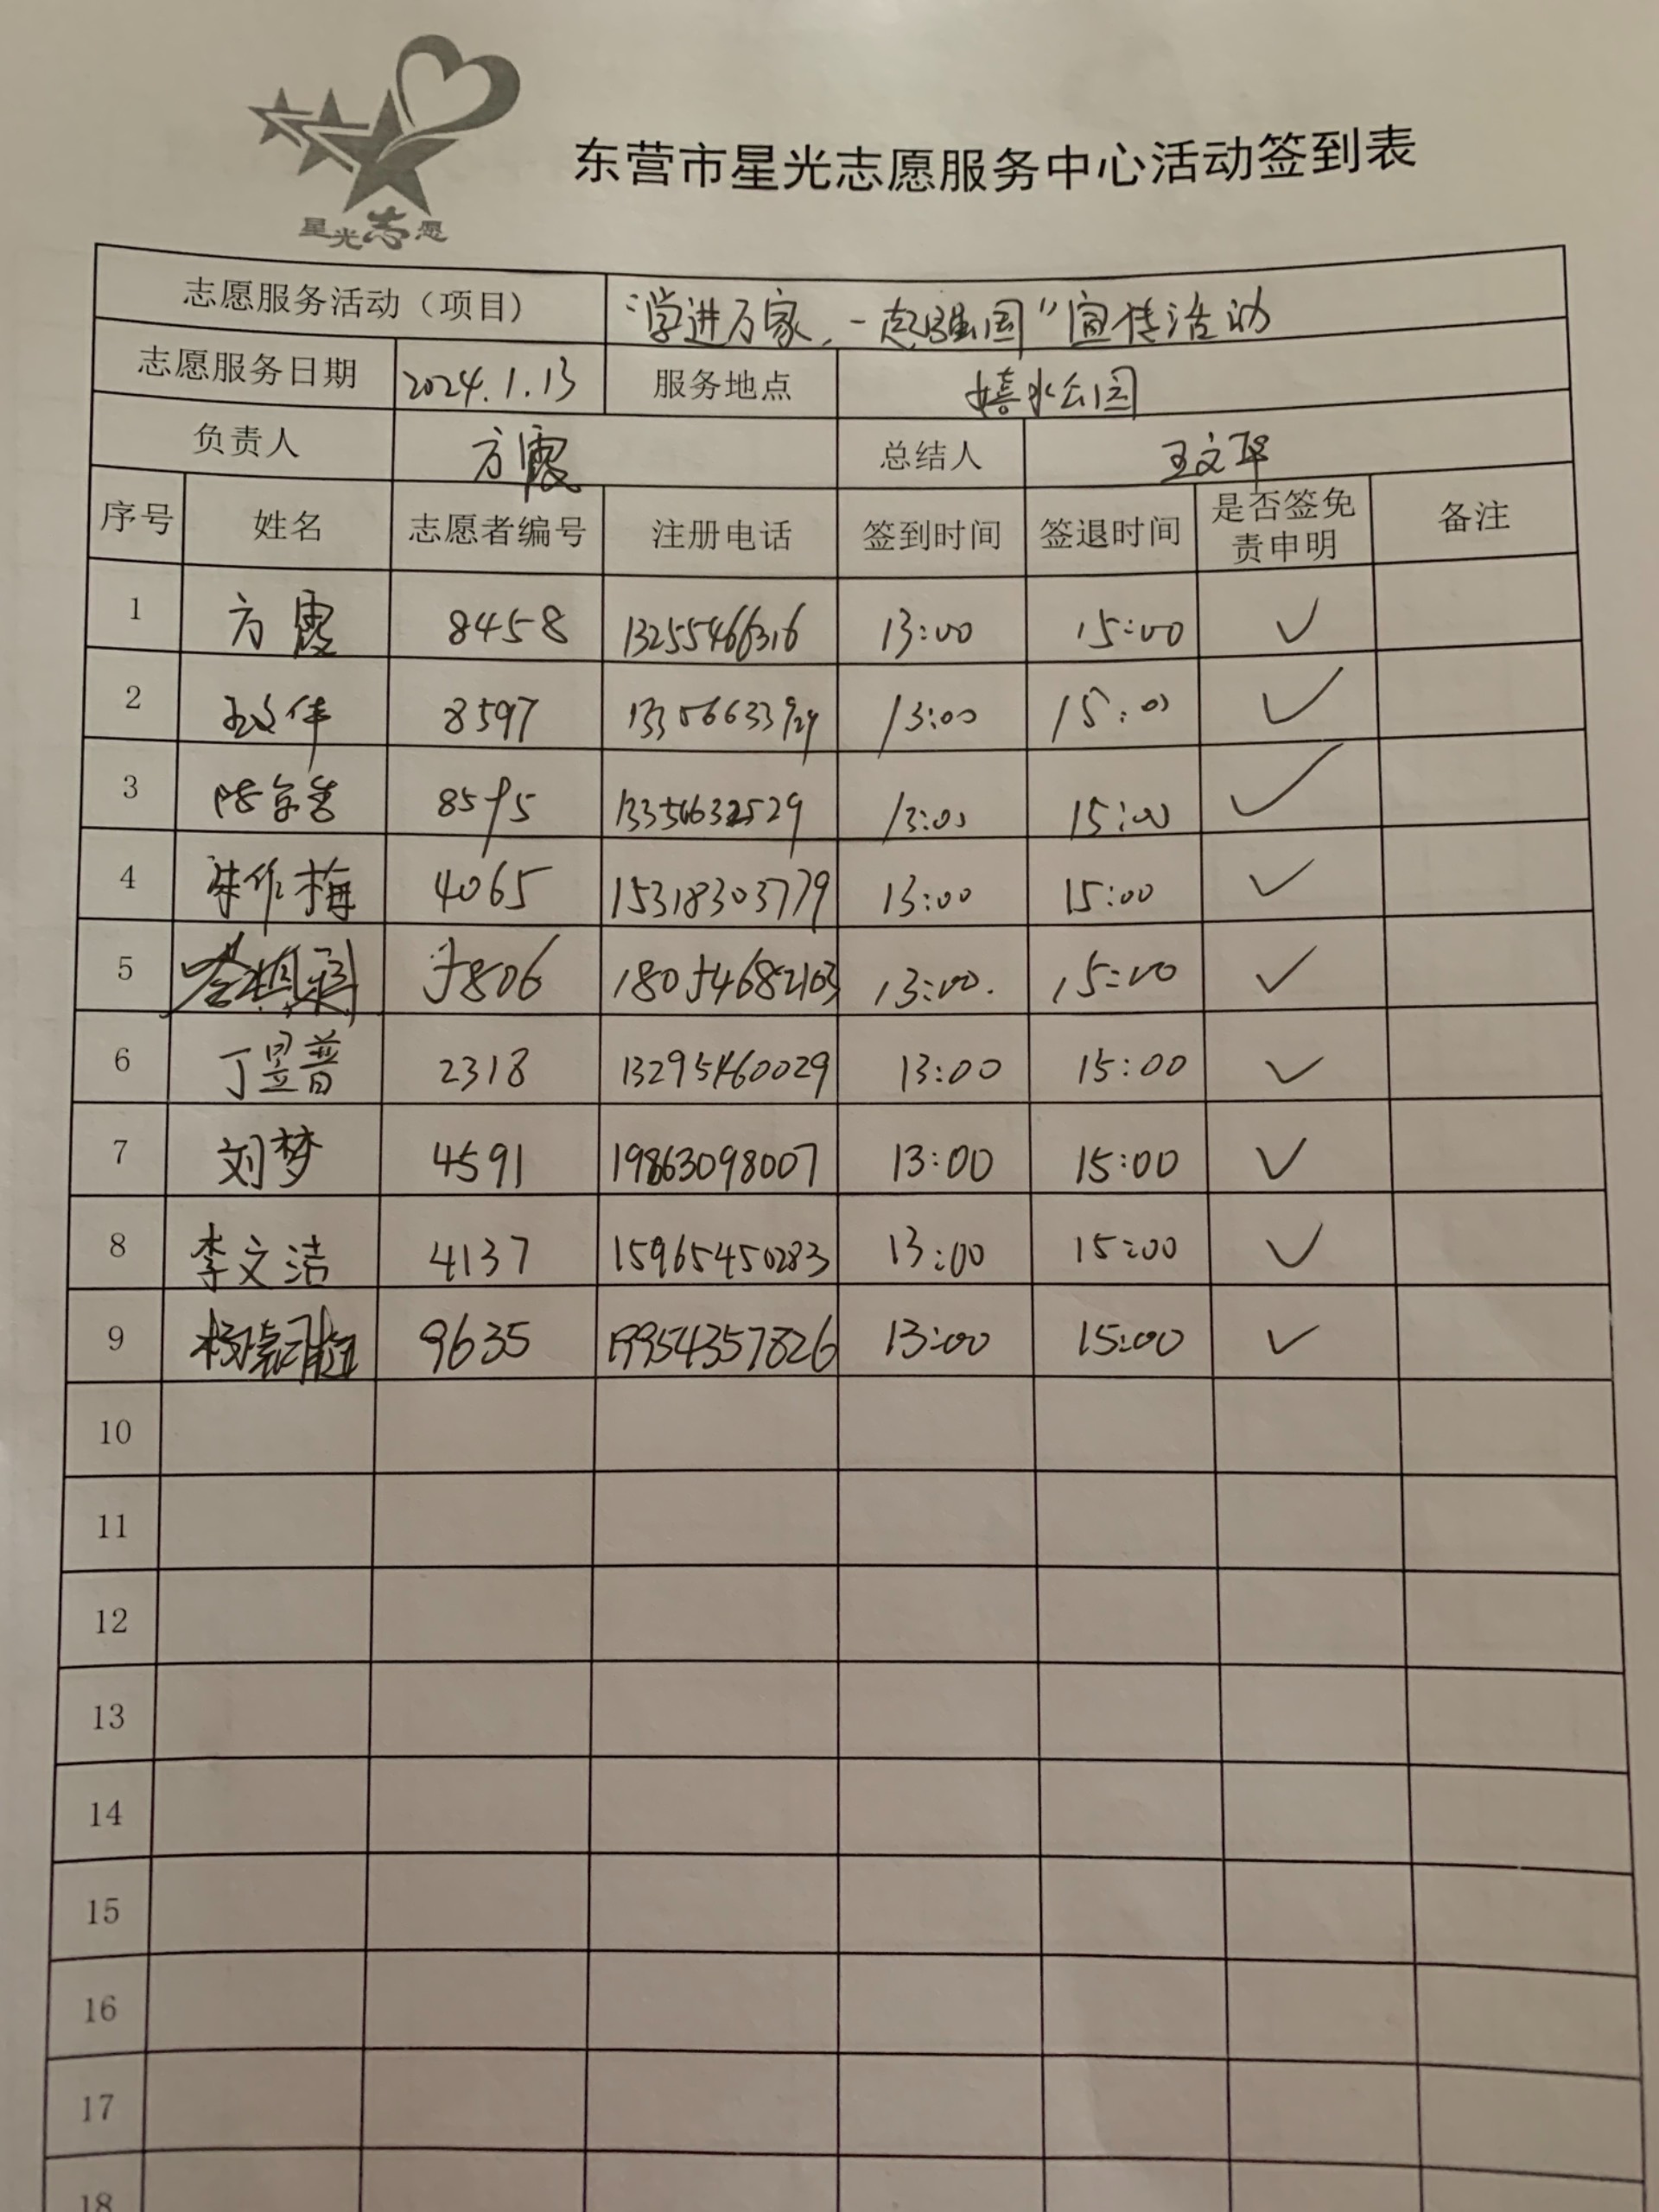 星光志愿
东营市星光志愿服务中心活动签到表
志愿服务活动（项目） “学进万家，一起强国”宣传活动
志愿服务日期 2024.1.13 服务地点 嬉水公园
负责人 方霞 总结人 王文华
序号 姓名 志愿者编号 注册电话 签到时间 签退时间 是否签免责申明 备注
1 方霞 8458 13255466316 13:00 15:00 ✓
2 8597 13:00 15:00 ✓
3 8595 13:00 15:00 ✓
4 朱作梅 4065 15318303779 13:00 15:00 ✓
5 5806 18054682103 13:00. 15:00 ✓
6 丁昱普 2318 13295460029 13:00 15:00 ✓
7 刘梦 4591 19863098007 13:00 15:00 ✓
8 李文洁 4137 15965450283 13:00 15:00 ✓
9 9635 19954357826 13:00 15:00 ✓
10
11
12
13
14
15
16
17
18